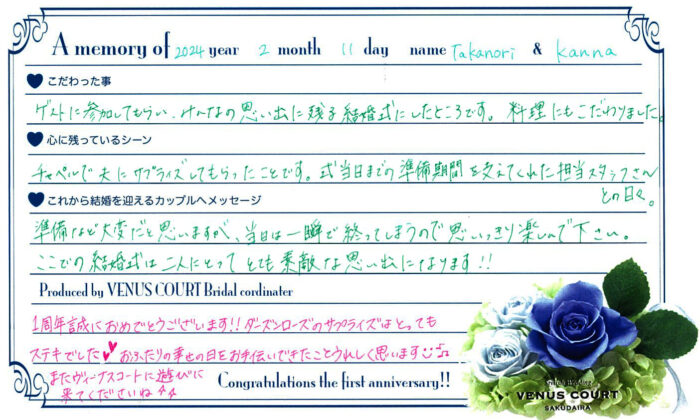 A memory of 2024 year 2 month 11 day name Takanori & kanna
こだわった事
ゲストに参加してもらい、みんなの思い出に残る結婚式にしたところです。料理にもこだわりました。
心に残っているシーン
チャペルで夫にサプライズしてもらったことです。式当日までの準備期間を支えてくれた担当スタッフさん
との日々。
これから結婚を迎えるカップルへメッセージ
準備など大変だと思いますが、当日は一瞬で終ってしまうので思いっきり楽しんで下さい。
ここでの結婚式は二人にとってとても素敵な思い出になります!!
Produced by VENUS COURT Bridal cordinater
1周年誠におめでとうございます!!ダーズンローズのサプライズはとっても
ステキでした おふたりの幸せの日をお手伝いできたことうれしく思います
またヴィーナスコートに遊びに
来てくださいね
Congratulations the first anniversary!!
VENUS COURT
SAKUDAIRA